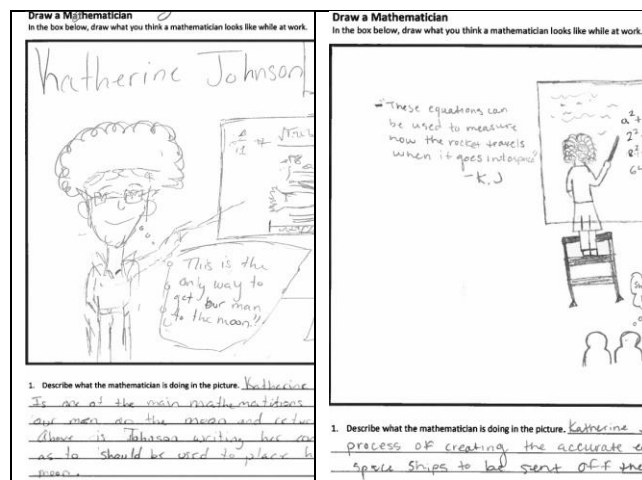 Draw a Mathematician
In the box below, draw what you think a mathematician looks like while at work.
Katherine Johnson
This is the
only way to
get our man
to the moon!!
1. Describe what the mathematician is doing in the picture. Katherine
Is one of the main mathematitions
our men on the moon and
Above is Johnson writing her
as to should be used to place h
moon.
Draw a Mathematician
In the box below, draw what you think a mathematician looks like while at work.
"These equations can
be used to measure
how the rocket travels
when it goes into
-K.J
a²+
2²
8²
1. Describe what the mathematician is doing in the picture. Katherine
process of creating the accurate e
space ships to be sent off the